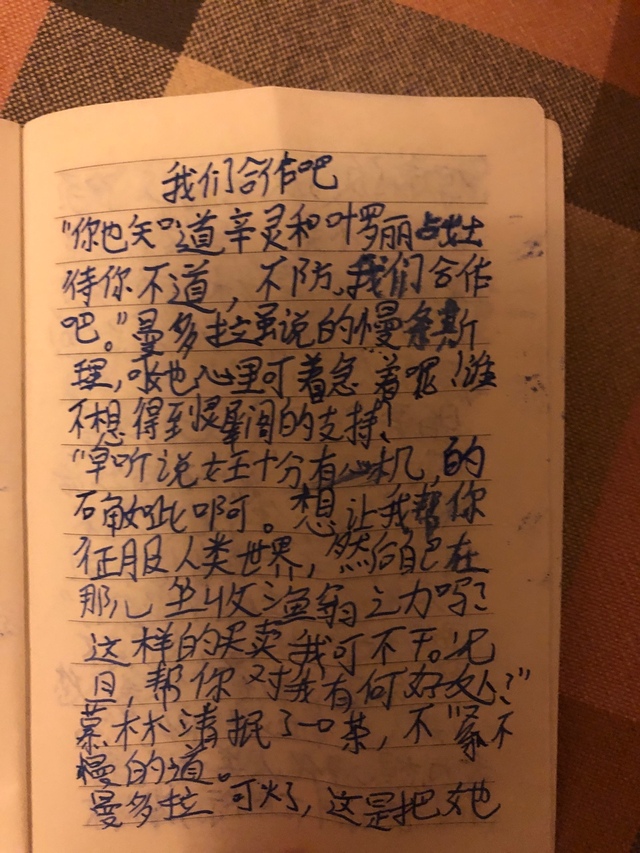 我们合作吧
"你也知道辛灵和叶罗丽战士
待你不道，不防我们合作
吧。"曼多拉虽说的慢条斯
理，她心里可着急着呢！谁
不想得到灵犀阁的支持？
"早听说女王十分有心机，的
确如此啊。想让我帮你
征服人类世界，然后自己在
那儿坐收渔翁之力吗？
这样的买卖我可不干。况
且，帮你对我有何好处？"
慕林清抿了一口茶，不紧不
慢的道。
曼多拉可火了，这是把她